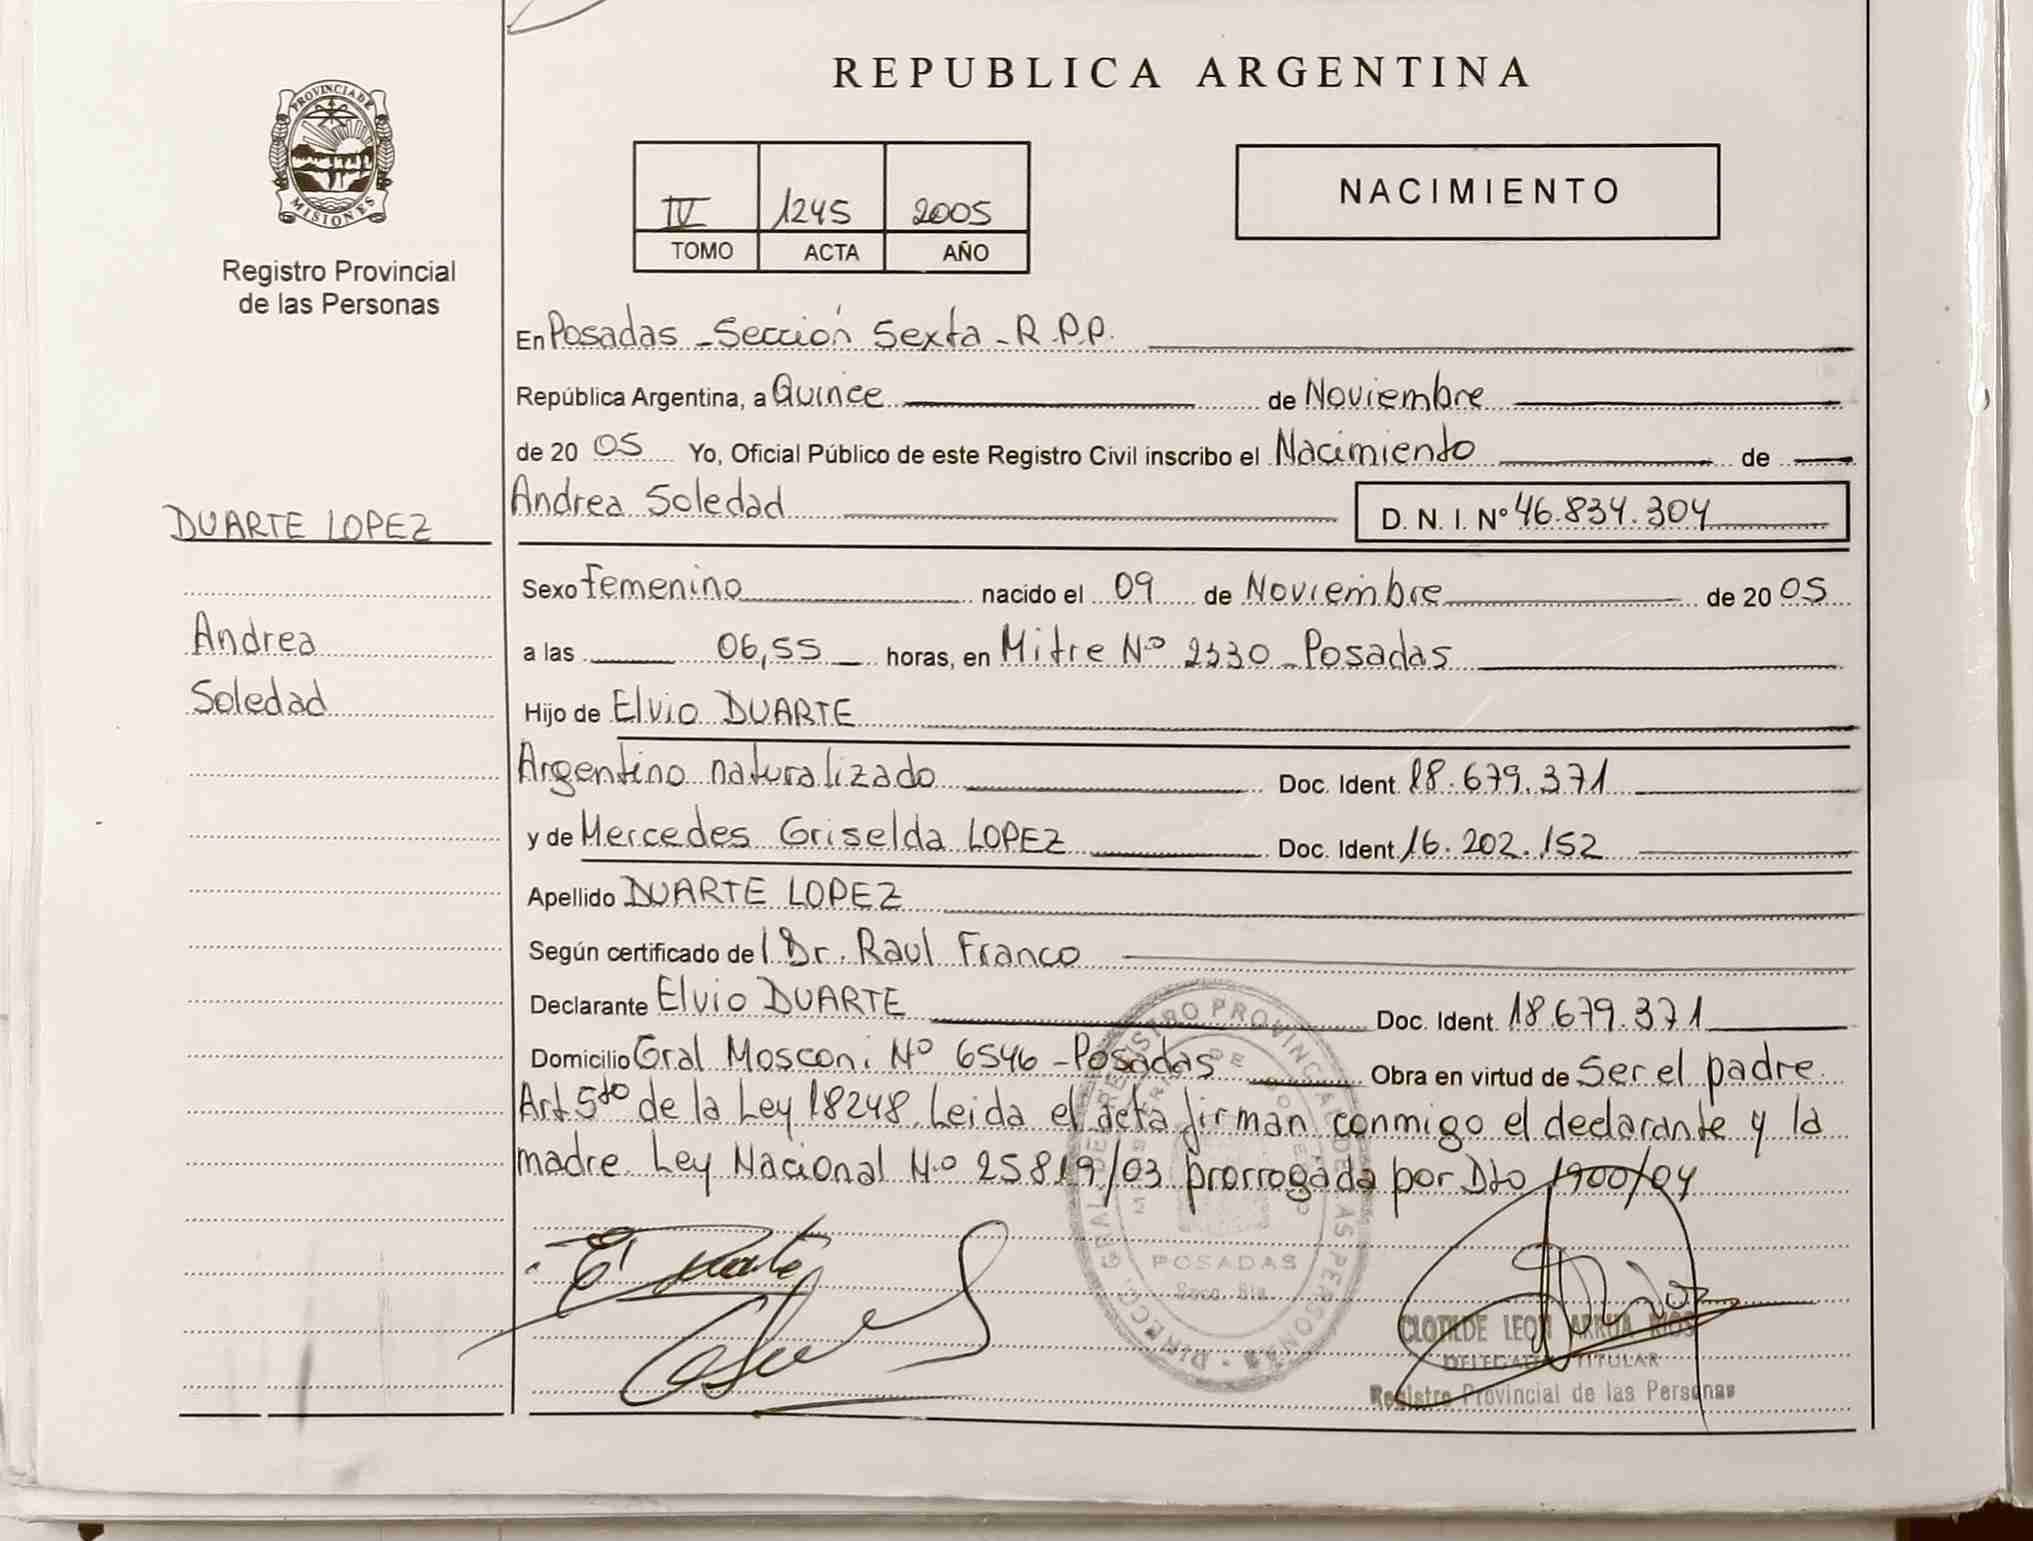 REPUBLICA ARGENTINA
PROVINCIA DE
MISIONES
Registro Provincial
de las Personas
IV 1245 2005
TOMO ACTA AÑO
NACIMIENTO
En Posadas - Sección Sexta - R.P.P.
República Argentina, a Quince de Noviembre
de 20 05 Yo, Oficial Público de este Registro Civil inscribo el Nacimiento de
Andrea Soledad D. N. I. Nº 46.834.304
DUARTE LOPEZ
Andrea
Soledad
Sexo Femenino nacido el 09 de Noviembre de 20 05
a las 06,55 horas, en Mitre Nº 2330 - Posadas
Hijo de Elvio DUARTE
Argentino naturalizado Doc. Ident. 18.679.371
y de Mercedes Griselda LOPEZ Doc. Ident. 16.202.152
Apellido DUARTE LOPEZ
Según certificado de l Dr. Raul Franco
Declarante Elvio DUARTE Doc. Ident. 18.679.371
Domicilio Gral Mosconi Nº 6546 - Posadas Obra en virtud de Ser el padre
Art 5to de la Ley 18248. Leida el acta firman conmigo el declarante y la
madre Ley Nacional Nº 25819/03 prorrogada por Dto 1900/04
POSADAS
CLOTILDE LEON ARRUA RIOS
DELEGADA TITULAR
Registro Provincial de las Personas